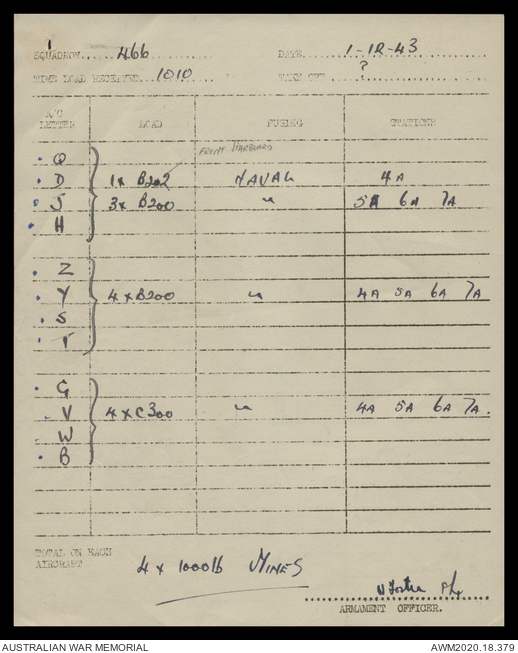 1
SQUADRON.....466........ DATE.....1-12-43
TIME LOAD RECEIVED...1010....... TAKE OFF...?...
A/C LETTER LOAD FUZING STATIONS
FRONT STARBOARD
Q
D 1 x B202 NAVAL 4A
J 3x B200 " 5A 6A 7A
H
Z
Y 4 x B200 " 4A 5A 6A 7A
S
T
G
V 4 x C300 " 4A 5A 6A 7A.
W
B
TOTAL ON EACH
AIRCRAFT
4 x 1000lb MINES
ARMAMENT OFFICER.
AUSTRALIAN WAR MEMORIAL AWM2020.18.379